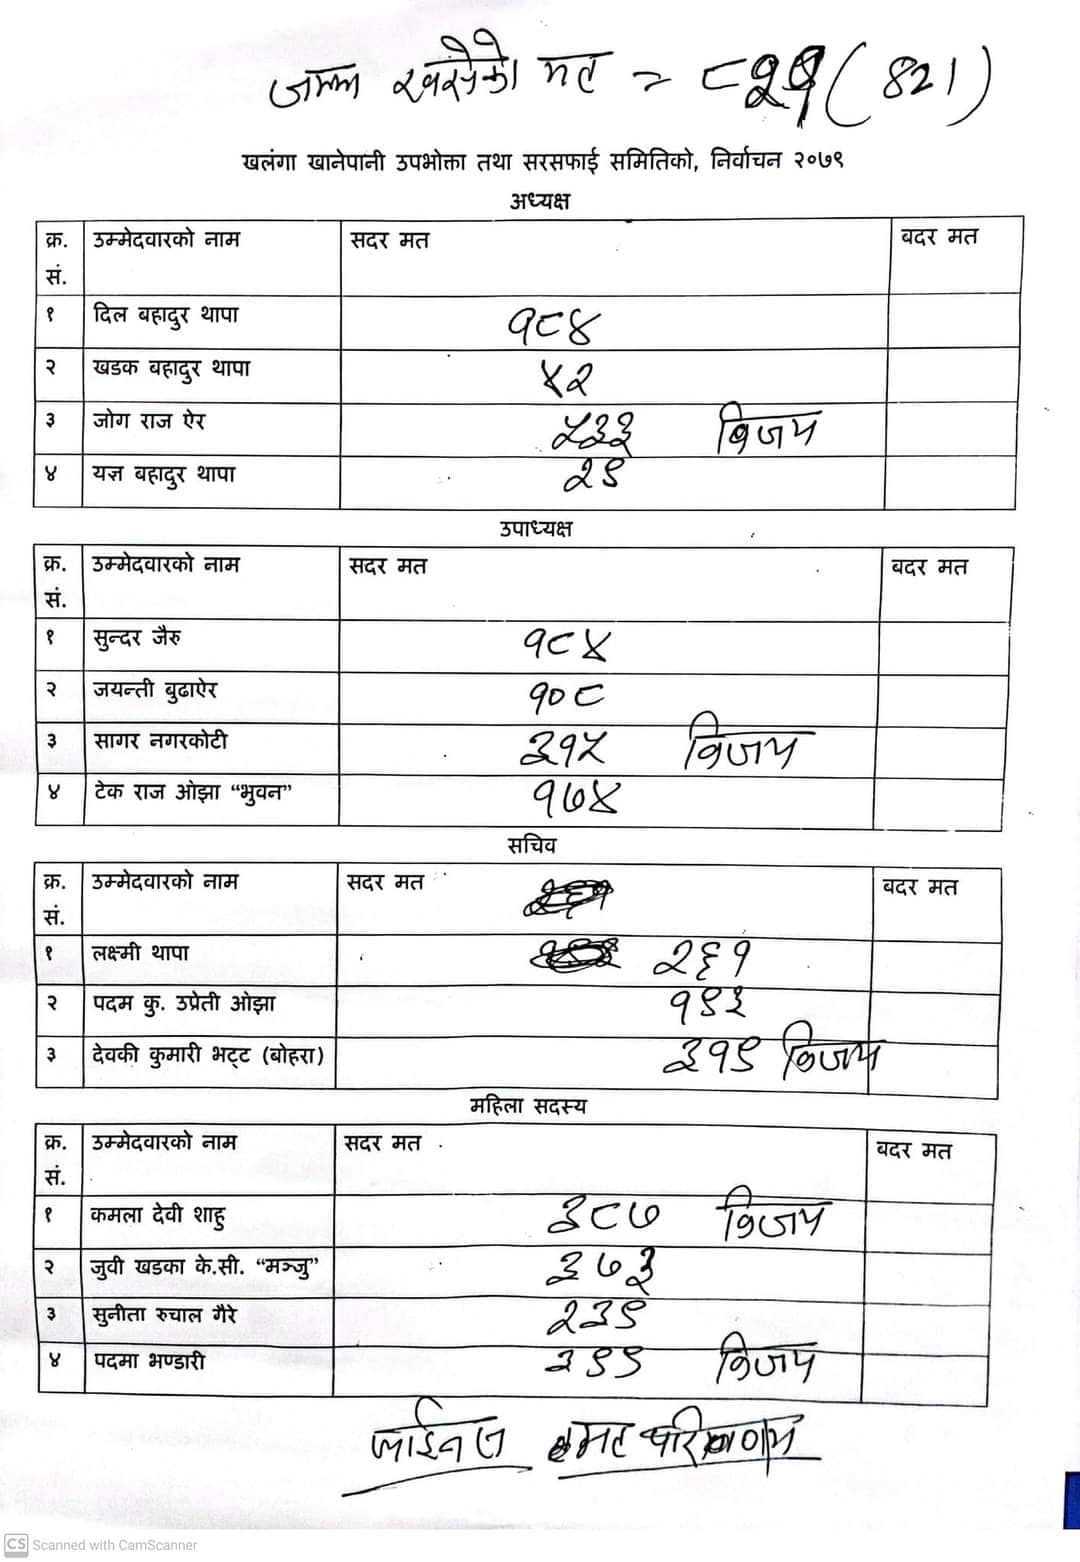 जम्मा खसेको मत = ८२१ (821)
खलंगा खानेपानी उपभोक्ता तथा सरसफाई समितिको, निर्वाचन २०७९
अध्यक्ष
क्र. सं. उम्मेदवारको नाम सदर मत बदर मत
१ दिल बहादुर थापा १८४
२ खडक बहादुर थापा ४२
३ जोग राज ऐर ५३३ विजय
४ यज्ञ बहादुर थापा २९
उपाध्यक्ष
क्र. सं. उम्मेदवारको नाम सदर मत बदर मत
१ सुन्दर जैरु १८४
२ जयन्ती बुढाऐर १०८
३ सागर नगरकोटी ३१५ विजय
४ टेक राज ओझा “भुवन” १७४
सचिव
क्र. सं. उम्मेदवारको नाम सदर मत बदर मत
१ लक्ष्मी थापा २६१
२ पदम कु. उप्रेती ओझा १९३
३ देवकी कुमारी भट्ट (बोहरा) ३१९ विजय
महिला सदस्य
क्र. सं. उम्मेदवारको नाम सदर मत बदर मत
१ कमला देवी शाहु ३८७ विजय
२ जुवी खडका के.सी. “मञ्जु” ३७३
३ सुनीता रुचाल गैरे २३९
४ पदमा भण्डारी ३९९ विजय
फाईनल मत परिणाम
CS Scanned with CamScanner